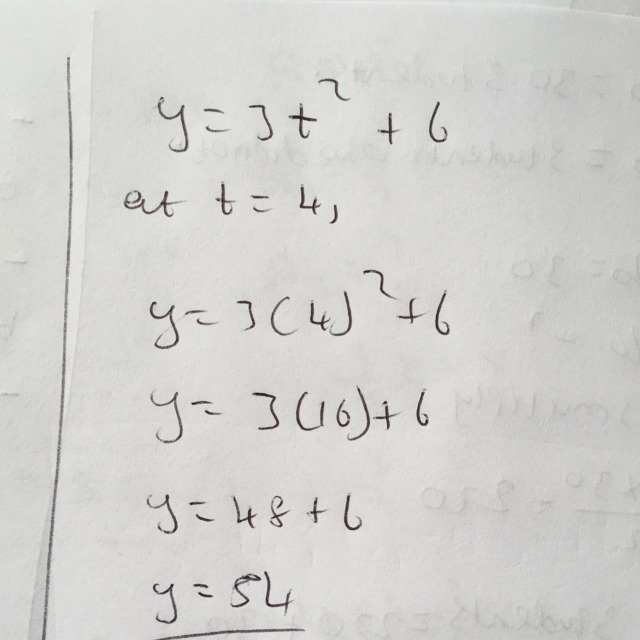 y = 3t² + 6
at t = 4,
y = 3(4)² + 6
y = 3(16) + 6
y = 48 + 6
y = 54